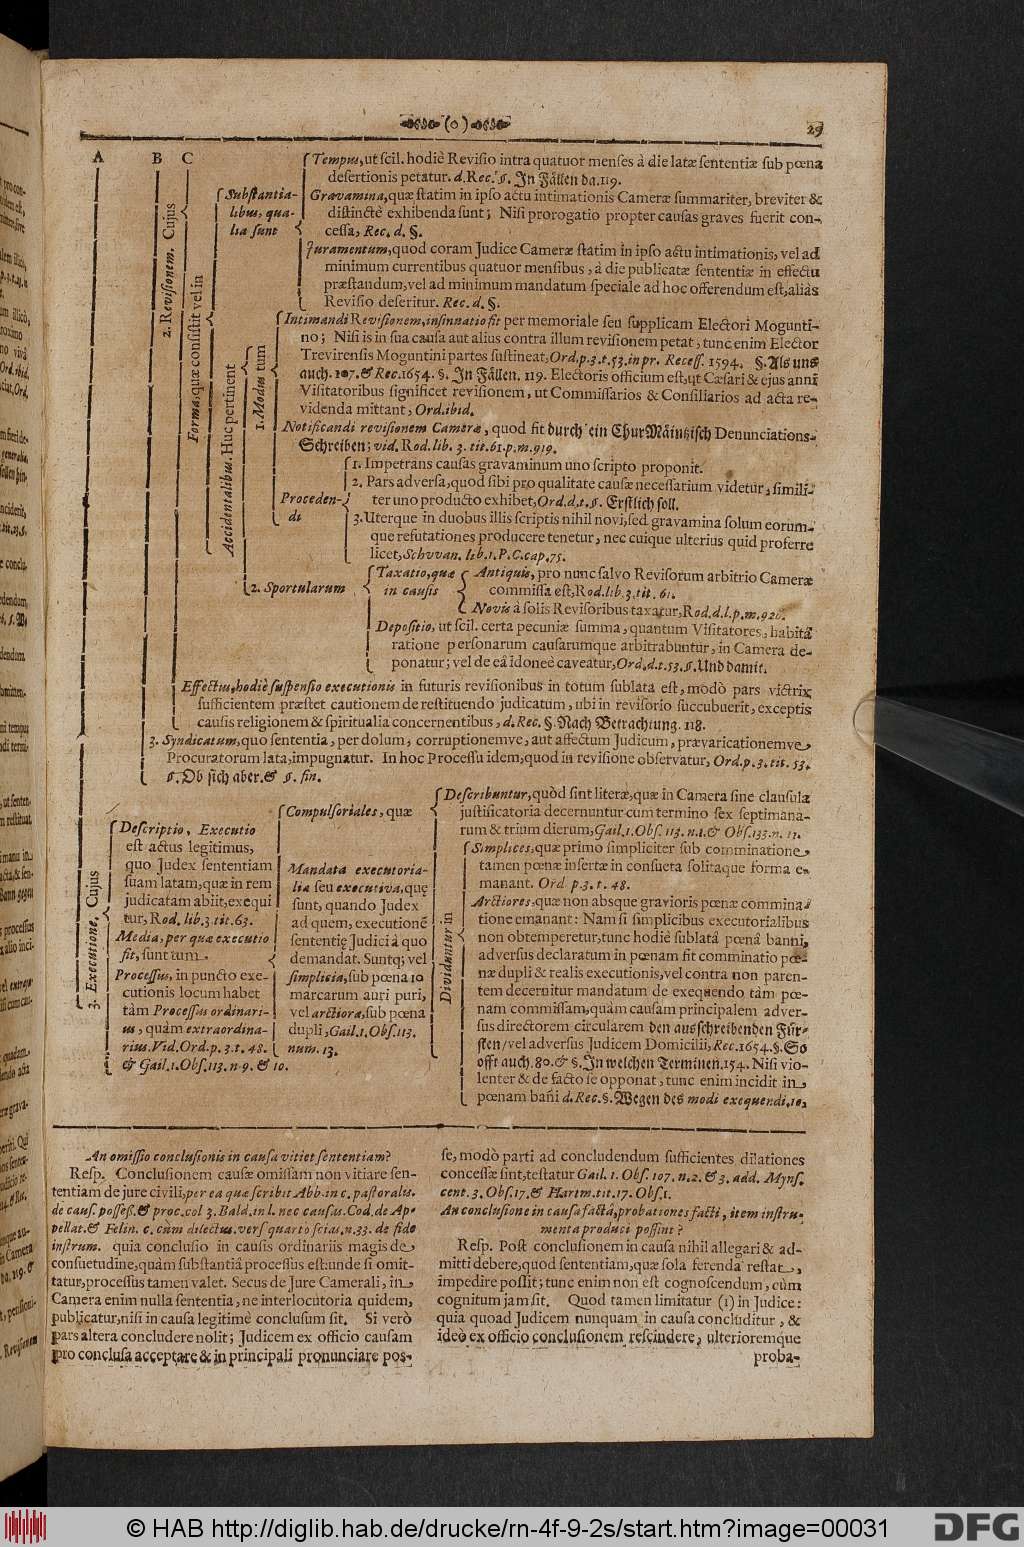 (o)
29
A B C
2. Revisionem. Cujus
Forma, quæ consistit vel in
Substantia-
libus, qua-
lia sunt
Tempus, ut scil. hodiè Revisio intra quatuor menses à die latæ sententiæ sub pœna
desertionis petatur. d. Rec. §. In Fällen da. 119.
Gravamina, quæ statim in ipso actu intimationis Cameræ summariter, breviter &
distinctè exhibenda sunt; Nisi prorogatio propter causas graves fuerit con-
cessa, Rec. d. §.
Juramentum, quod coram Judice Cameræ statim in ipso actu intimationis, vel ad
minimum currentibus quatuor mensibus, à die publicatæ sententiæ in effectu
præstandum, vel ad minimum mandatum speciale ad hoc offerendum est, aliàs
Revisio deseritur. Rec. d. §.
Accidentalibus. Huc pertinent
1. Modus tum
Intimandi Revisionem, insinuatio fit per memoriale seu supplicam Electori Moguntî-
no; Nisi is in sua causa aut alius contra illum revisionem petat, tunc enim Elector
Trevirensis Moguntini partes sustineat, Ord. p. 3. t. 53. in pr. Recess. 1594. §. Als uns
auch. 107. & Rec. 1654. §. In Fällen. 119. Electoris officium est, ut Cæsari & ejus anni
Visitatoribus significet revisionem, ut Commissarios & Consiliarios ad acta re-
videnda mittant, Ord. ibid.
Notificandi revisionem Cameræ, quod fit durch ein ChurMäintzisch Denunciations-
Schreiben; vid. Rod. lib. 3. tit. 61. p. m. 919.
Proceden-
di
1. Impetrans causas gravaminum uno scripto proponit.
2. Pars adversa, quod sibi pro qualitate causæ necessarium videtur, simili-
ter uno producto exhibet, Ord. d. t. §. Erstlich soll.
3. Uterque in duobus illis scriptis nihil novi, sed gravamina solum eorum-
que refutationes producere tenetur, nec cuique ulterius quid proferre
licet, Schvvan. lib. 1. P. C. cap. 75.
2. Sportularum
Taxatio, quæ
in causis
Antiquis, pro nunc salvo Revisorum arbitrio Cameræ
commissa est, Rod. lib. 3. tit. 61.
Novis à solis Revisoribus taxatur, Rod. d. l. p. m. 920.
Depositio, ut scil. certa pecuniæ summa, quantum Visitatores, habitâ
ratione personarum causarumque arbitrabuntur, in Camera de-
ponatur; vel de eâ idoneè caveatur, Ord. d. t. 53. §. Und damit.
Effectus, hodiè suspensio executionis in futuris revisionibus in totum sublata est, modò pars victrix
sufficientem præstet cautionem de restituendo judicatum, ubi in revisorio succubuerit, exceptis
causis religionem & spiritualia concernentibus, d. Rec. §. Nach Betrachtung. 118.
3. Syndicatum, quo sententia, per dolum, corruptionemve, aut affectum Judicum, prævaricationemve
Procuratorum lata, impugnatur. In hoc Processu idem, quod in revisione observatur, Ord. p. 3. tit. 53.
§. Ob sich aber. & §. fin.
3. Executione, Cujus
Descriptio, Executio
est actus legitimus,
quo Judex sententiam
suam latam, quæ in rem
judicatam abiit, exequi
tur, Rod. lib. 3 tit. 63.
Media, per quæ executio
fit, sunt tum
Processus, in puncto exe-
cutionis locum habet
tàm Processus ordinari-
us, quàm extraordina-
rius. Vid. Ord. p. 3. t. 48.
& Gail. 1. Obs. 113. n. 9. & 10.
Compulsoriales, quæ
Mandata executoria-
lia seu executiva, quę
sunt, quando Judex
ad quem, executionē
sententię Judici à quo
demandat. Suntq; vel
simplicia, sub pœna 10
marcarum auri puri,
vel arctiora, sub pœna
dupli, Gail. 1. Obs. 113.
num. 13.
Describuntur, quòd sint literæ, quæ in Camera sine clausula
justificatoria decernuntur cum termino sex septimana-
rum & trium dierum, Gail. 1. Obs. 113. n. 1. & Obs. 133. n. 11.
Dividuntur in
Simplices, quæ primo simpliciter sub comminatione
tamen pœnæ insertæ in consueta solitaque forma e-
manant. Ord p. 3. t. 48.
Arctiores, quæ non absque gravioris pœnæ commina-
tione emanant: Nam si simplicibus executorialibus
non obtemperetur, tunc hodiè sublatâ pœnâ banni,
adversus declaratum in pœnam fit comminatio pœ-
næ dupli & realis executionis, vel contra non paren-
tem decernitur mandatum de exequendo tàm pœ-
nam commissam, quàm causam principalem adver-
sus directorem circularem den ausschreibenden Für-
sten / vel adversus Judicem Domicilii, Rec. 1654. §. So
offt auch. 80. & §. In welchen Terminen. 154. Nisi vio-
lenter & de facto se opponat, tunc enim incidit in
pœnam bañi d. Rec. §. Wegen des modi exequendi. 10,
An omissio conclusionis in causa vitiet sententiam?
Resp. Conclusionem causæ omissam non vitiare sen-
tentiam de jure civili, per ea quæ scribit Abb. in c. pastoralis.
de caus. posseß. & proc. col 3. Bald. in l. nec causus. Cod. de Ap-
pellat. & Felin. c. cùm dilectus. vers quarto scias. n. 33. de fide
instrum. quia conclusio in causis ordinariis magis de
consuetudine, quàm substantiâ processus est: unde si omit-
tatur, processus tamen valet. Secus de Jure Camerali, in
Camera enim nulla sententia, ne interlocutoria quidem,
publicatur, nisi in causa legitimè conclusum sit. Si verò
pars altera concludere nolit; Judicem ex officio causam
pro conclusa acceptare & in principali pronunciare pos-
se, modò parti ad concludendum sufficientes dilationes
concessæ sint, testatur Gail. 1. Obs. 107. n. 2. & 3. add. Myns.
cent. 3. Obs. 17. & Hartm. tit. 17. Obs. 1.
An conclusione in causa factâ, probationes facti, item instru-
menta produci possint?
Resp. Post conclusionem in causa nihil allegari & ad-
mitti debere, quod sententiam, quæ sola ferenda restat,
impedire possit; tunc enim non est cognoscendum, cùm
cognitum jam sit. Quod tamen limitatur (1) in Judice:
quia quoad Judicem nunquam in causa concluditur, &
ideò ex officio conclusionem rescindere, ulterioremque
proba-
© HAB http://diglib.hab.de/drucke/rn-4f-9-2s/start.htm?image=00031
DFG